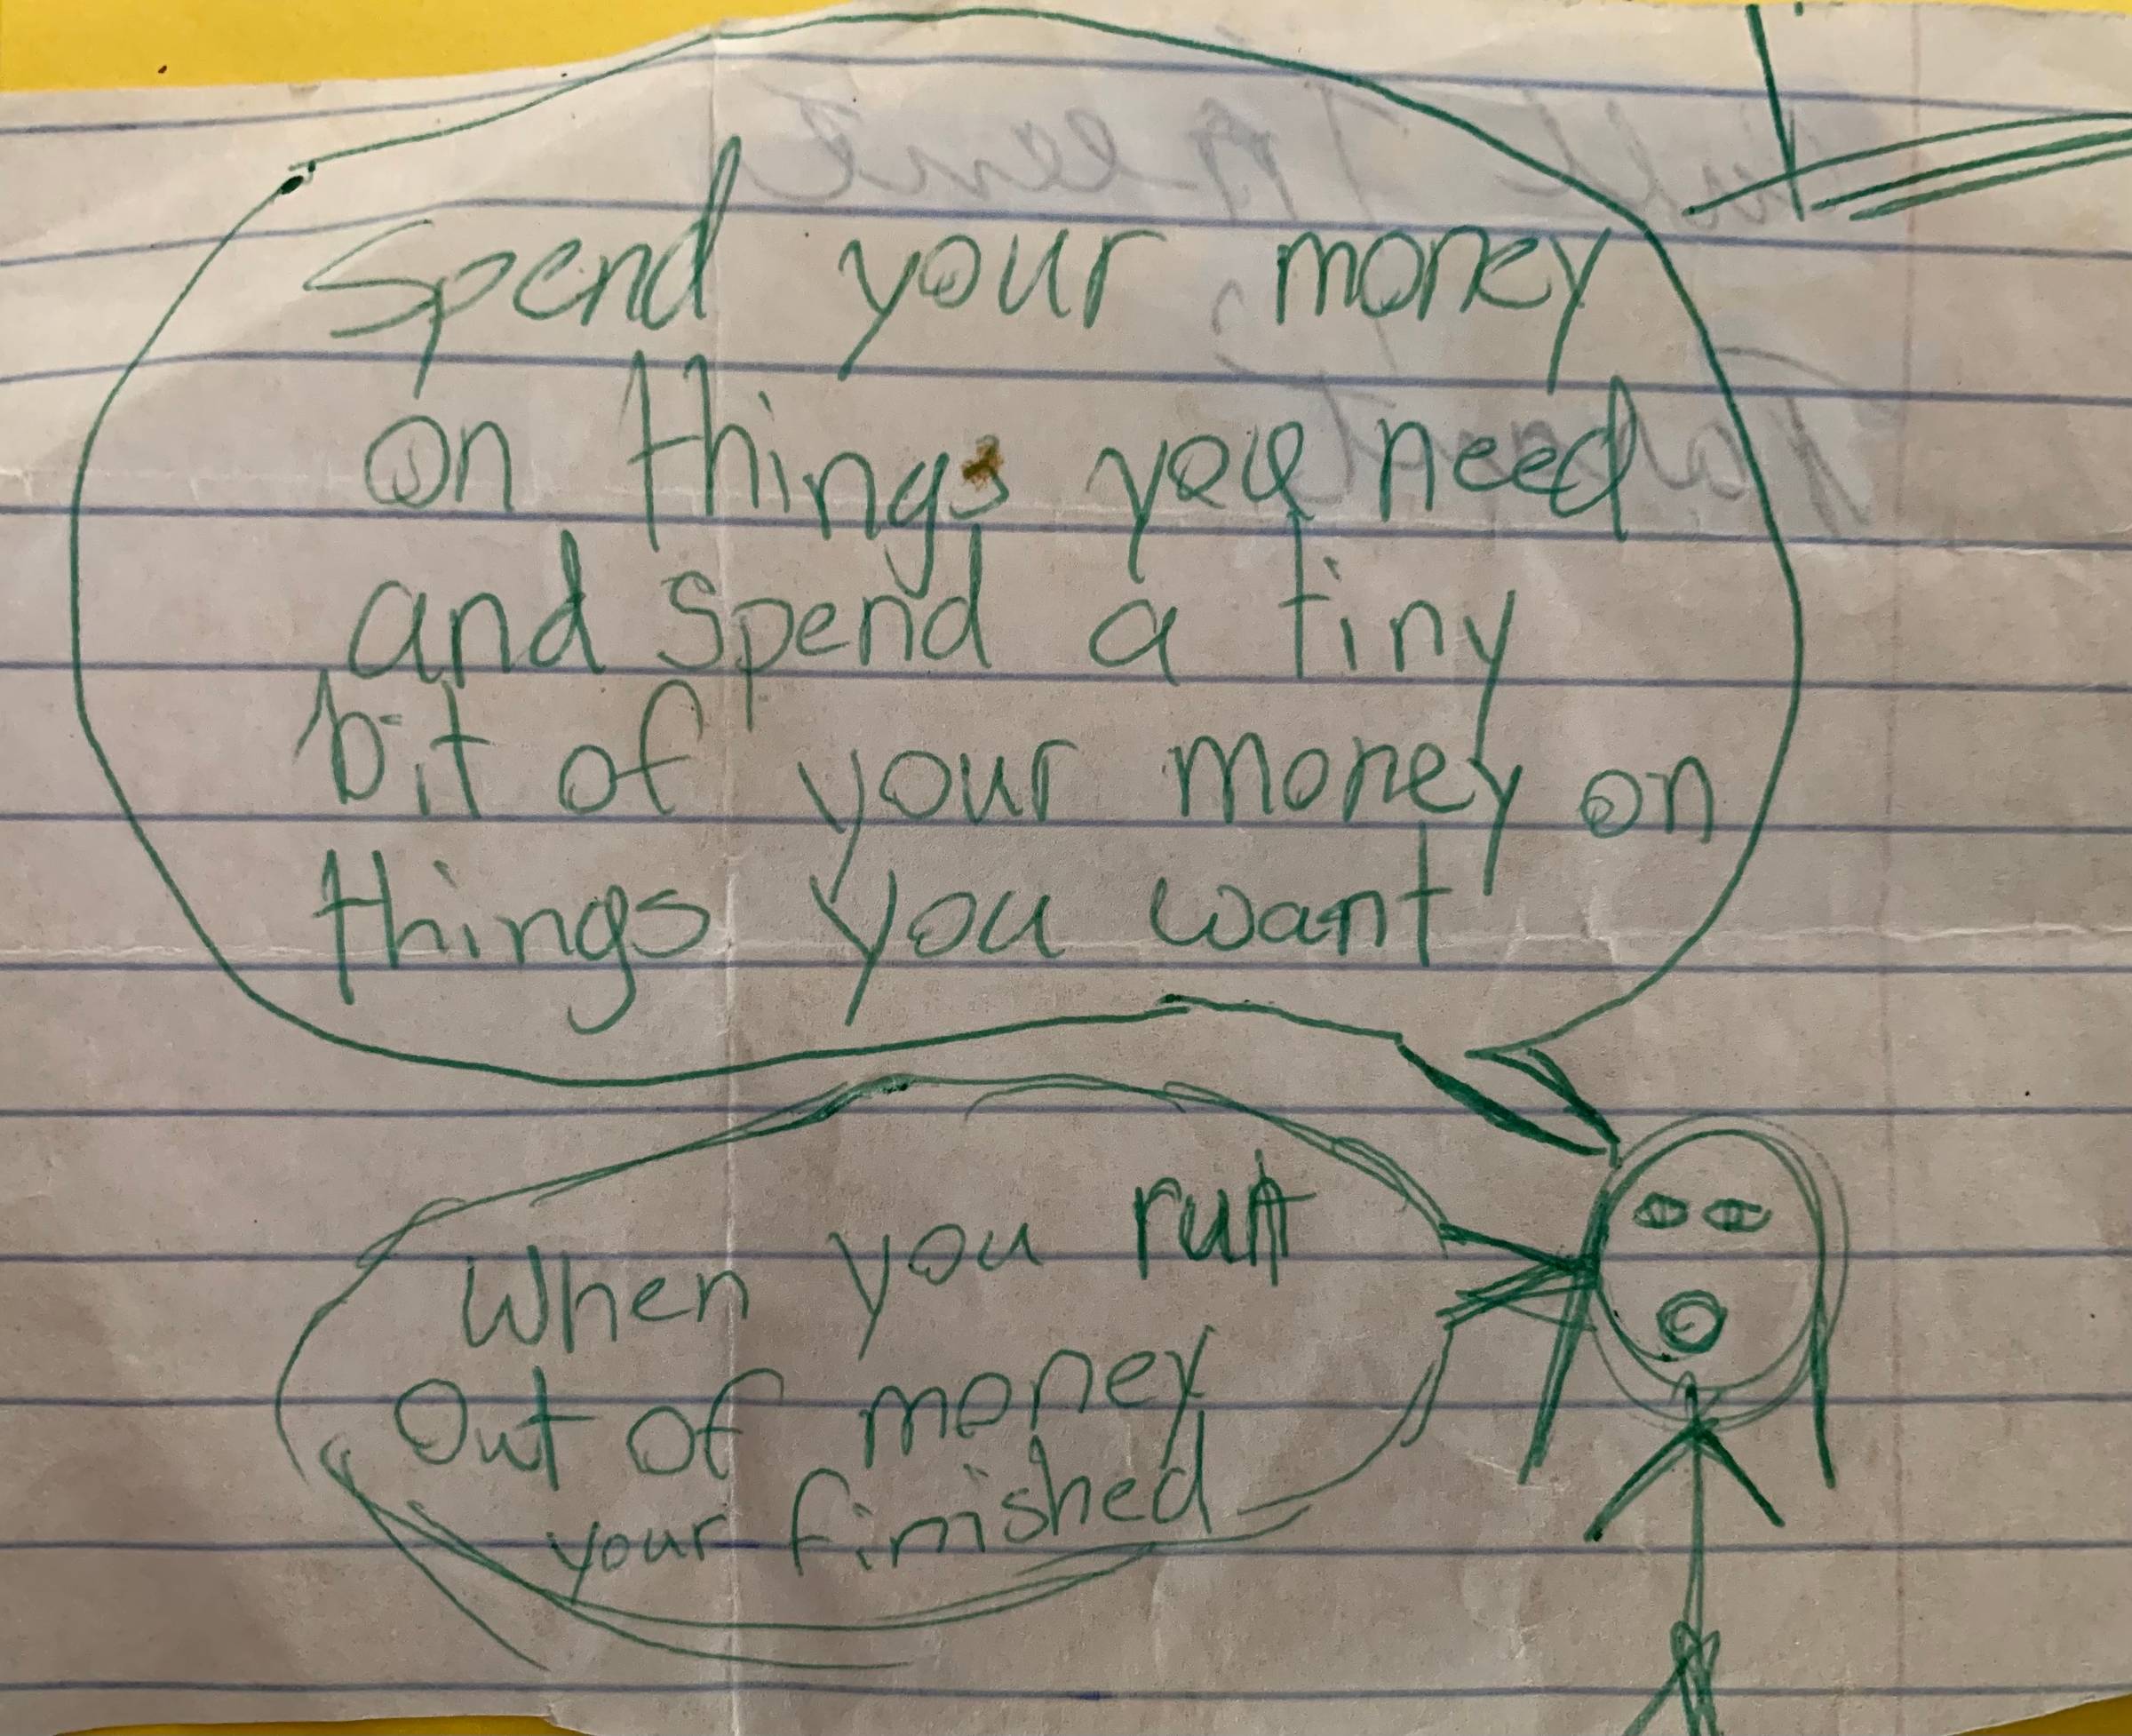 Spend your money
on things you need
and spend a tiny
bit of your money on
things you want
When you run
Out of money
your finished